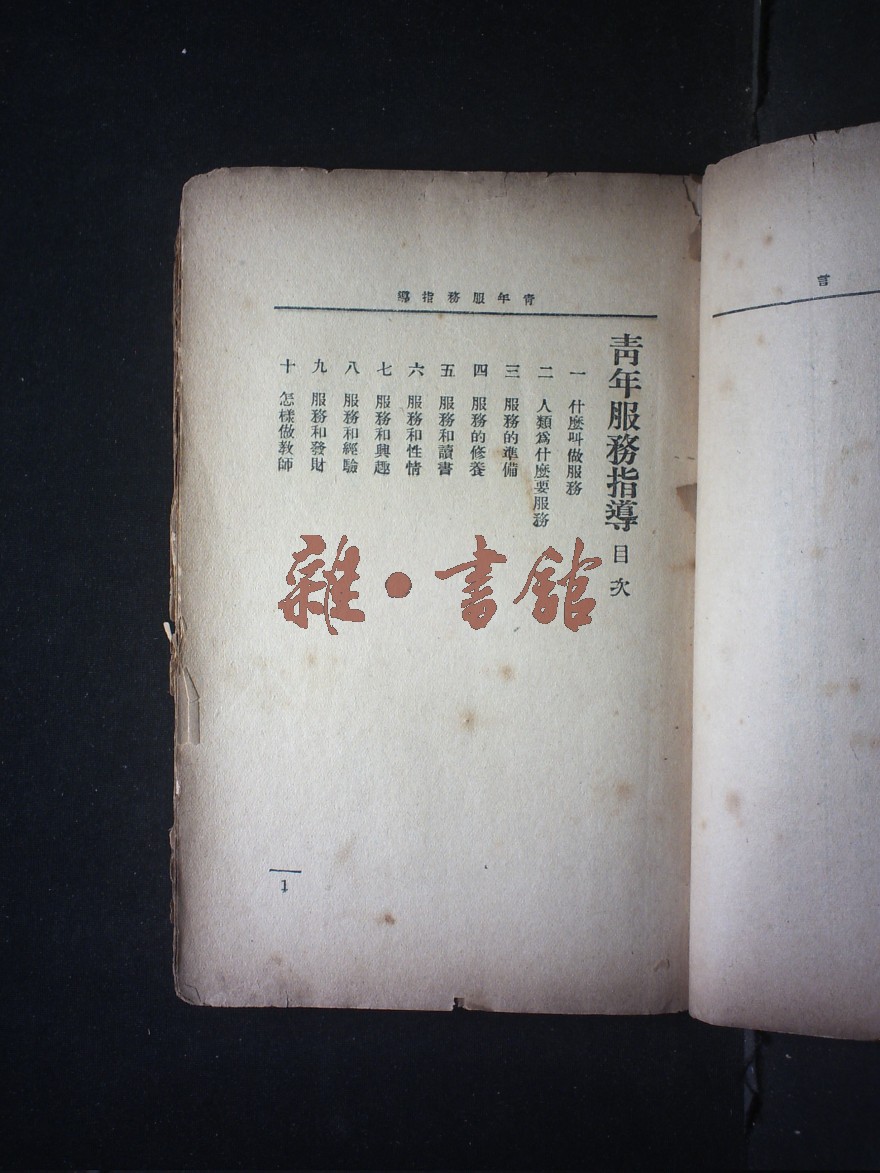 青年服務指導
靑年服務指導 目次
一 什麼叫做服務
二 人類爲什麼要服務
三 服務的準備
四 服務的修養
五 服務和讀書
六 服務和性情
七 服務和興趣
八 服務和經驗
九 服務和發財
十 怎樣做教師
1
言
雜·書館